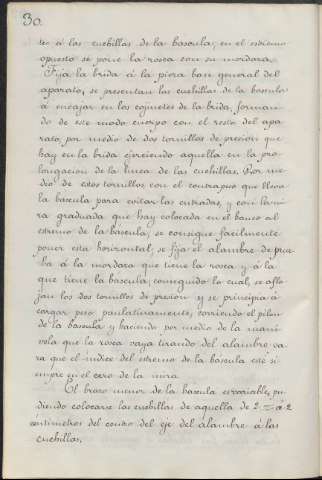 30
tes á las cuchillas de la bascula; en el estremo
opuesto se pone la rosca con su mordaza.
Fija la brida á la pieza base general del
aparato, se presentan las cuchillas de la bascula
á encajar en los cojinetes de la brida, forman-
do de este modo cuerpo con el resto del apa
rato por medio de dos tornillos de presion que
hay en la brida ejerciendo aquella en la pro-
longacion de la linea de las cuchillas. Por me
dio de estos tornillos con el contrapeso que lleva
la bascula para evitar las entradas, y con la mi
ra graduada que hay colocada en el banco al
estremo de la bascula, se consigue facilmente
poner esta horizontal: se fija el alambre de prue
ba á la mordaza que tiene la rosca y á la
que tiene la bascula, conseguido lo cual, se aflo
jan los dos tornillos de presion y se principia á
cargar peso paulatinamente, corriendo el pilon
de la bascula y haciendo por medio de la mani
vela que la rosca vaya tirando del alambre pa
ra que el indice del estremo de la báscula esté si
empre en el cero de la mira.
El brazo menor de la bascula es variable, pu
diendo colocarse las cuchillas de aquella de 2 á 2
centimetros del centro del eje del alambre á las
cuchillas.